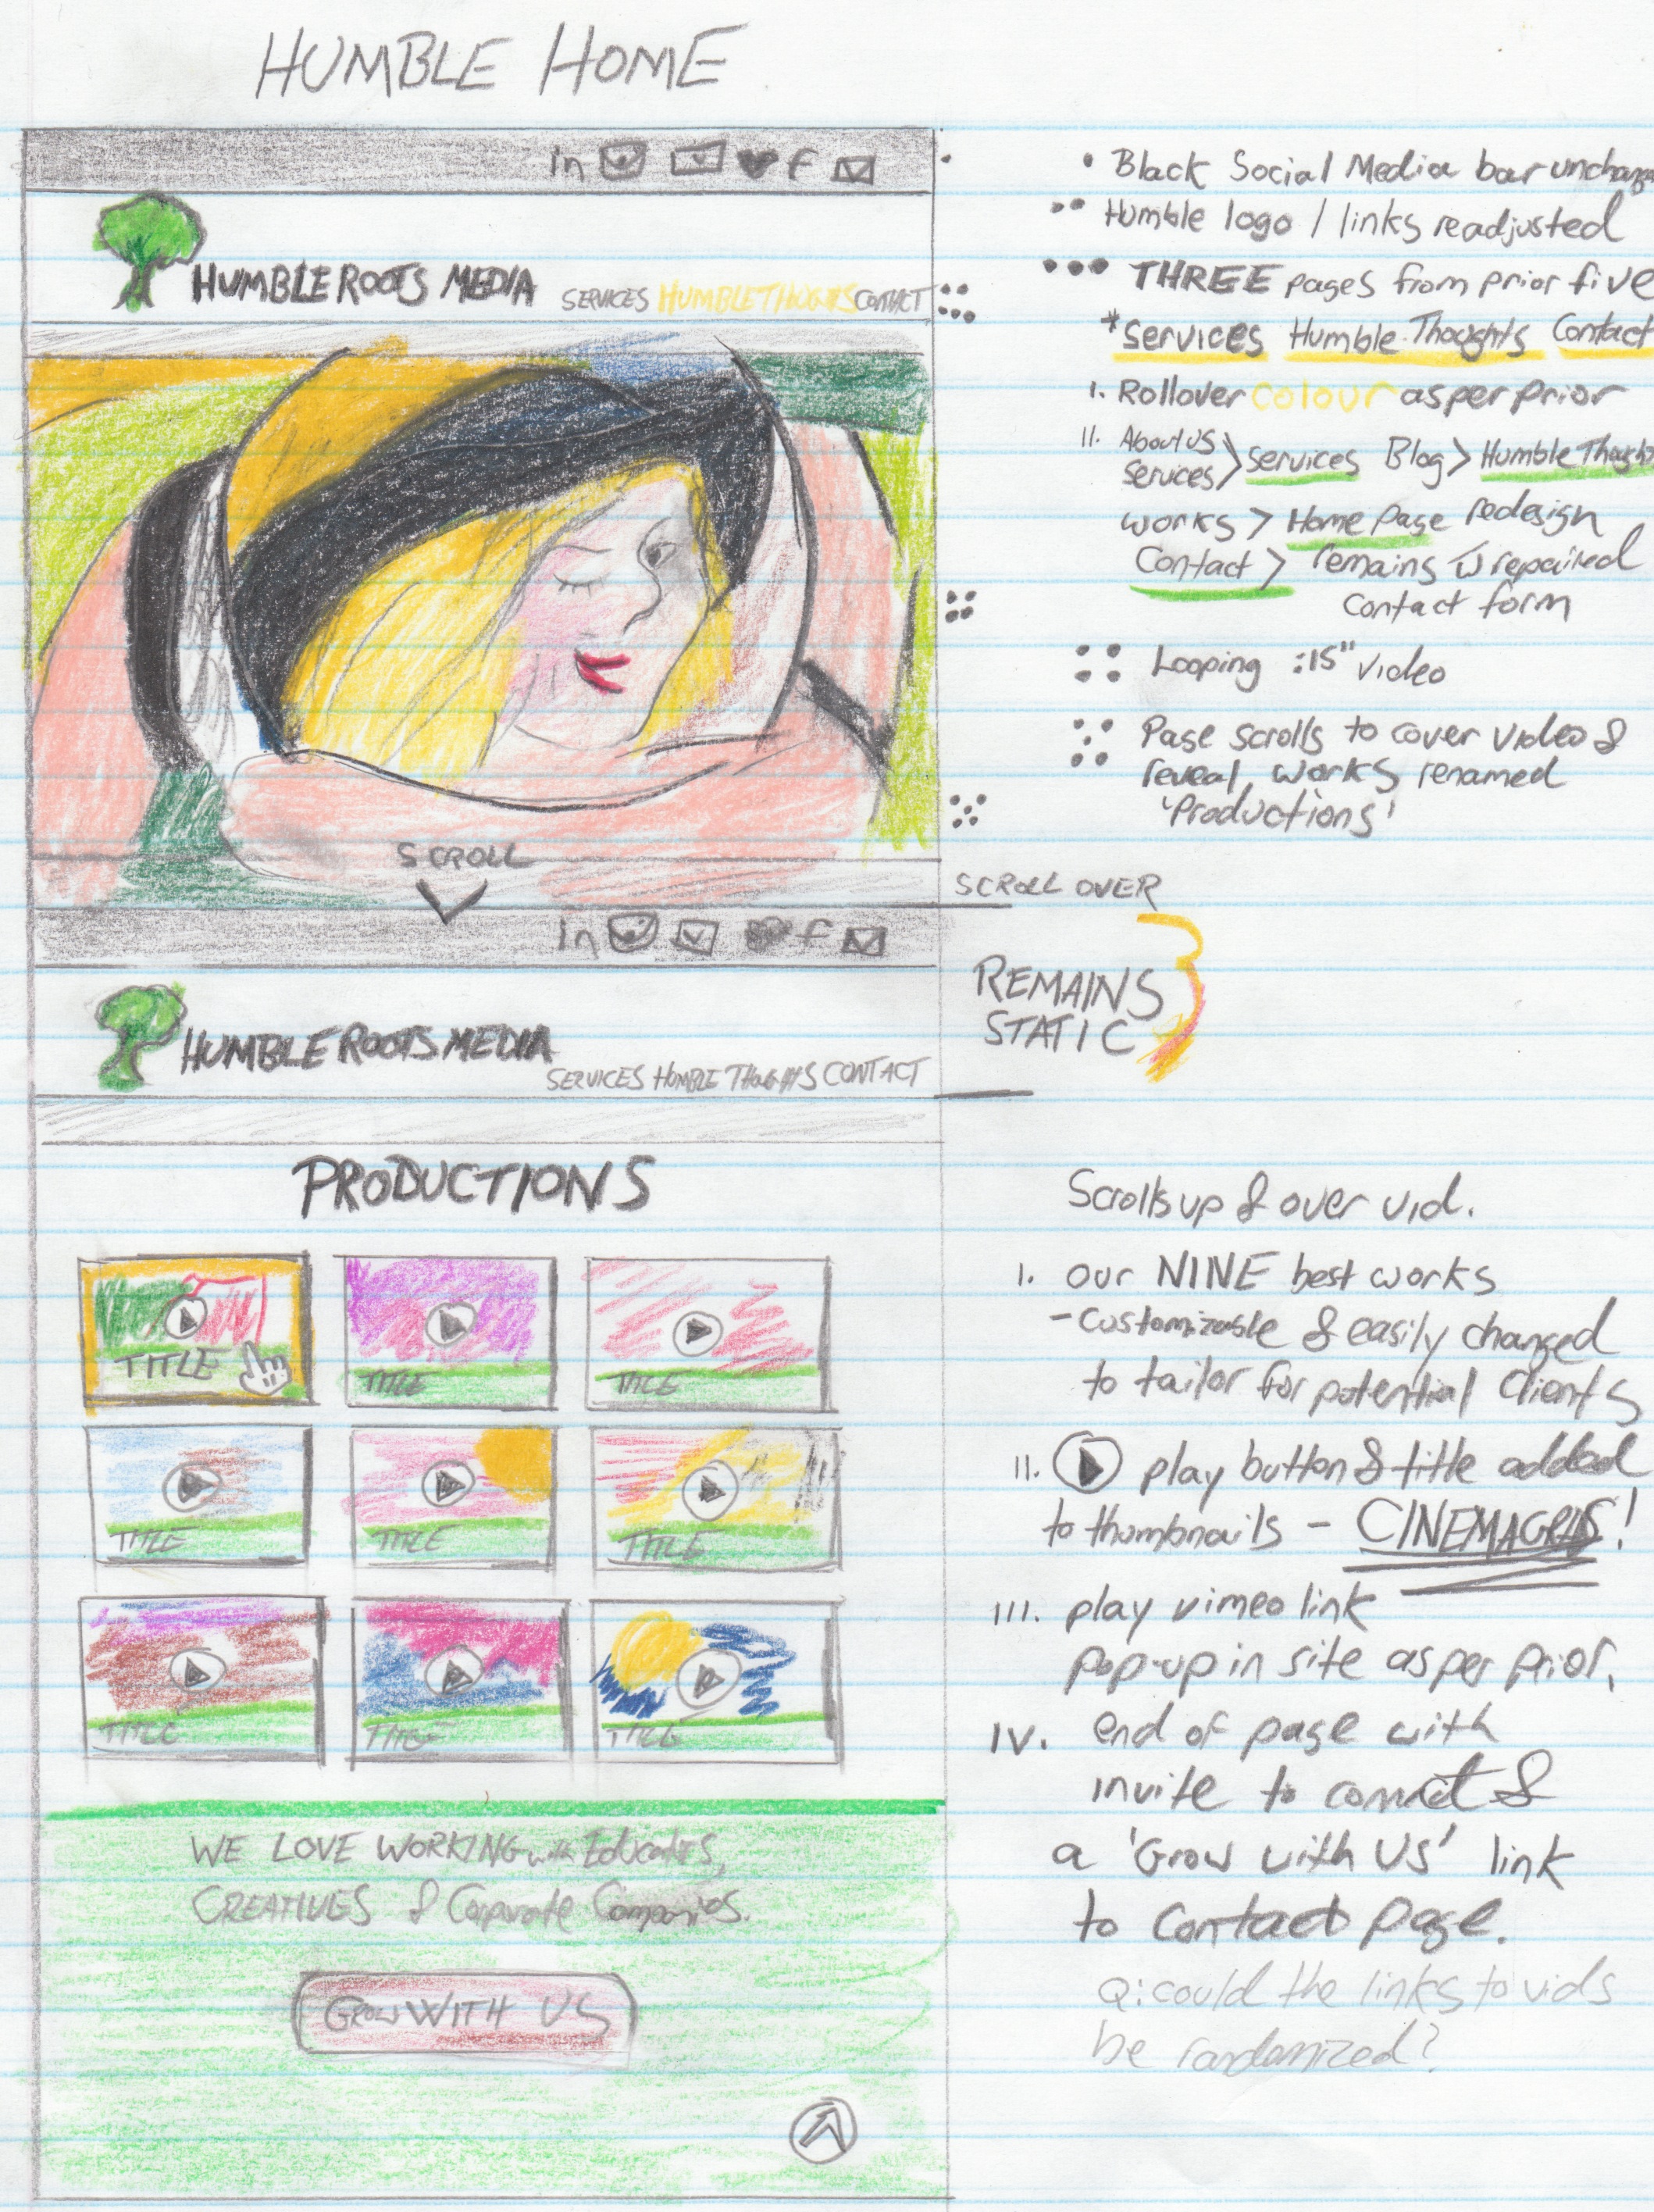 HUMBLE HOME
in f
HUMBLE ROOTS MEDIA
SERVICES HUMBLE THOUGHTS CONTACT
SCROLL
in f
HUMBLE ROOTS MEDIA
SERVICES HUMBLE THOUGHTS CONTACT
PRODUCTIONS
TITLE TITLE TITLE
TITLE TITLE TITLE
TITLE TITLE TITLE
WE LOVE WORKING with Educators,
CREATIVES & Corporate Companies.
GROW WITH US
• Black Social Media bar
•• Humble logo / links readjusted
••• THREE pages from prior five
*Services Humble Thoughts Contact
I. Rollover colour as per prior
II. About US
Services > Services Blog > Humble
works > Home Page redesign
Contact > remains w repaired
contact form
Looping :15" video
Page scrolls to cover video &
reveal, works renamed
'Productions'
SCROLL OVER
REMAINS
STATIC
Scrolls up & over vid.
I. our NINE best works
- customizable & easily changed
to tailor for potential clients
II. play button & title added
to thumbnails -
III. play vimeo link
pop-up in site as per prior.
IV. end of page with
invite to &
a 'Grow with US' link
to Contact page.
Q: could the links to vids
be randomized?